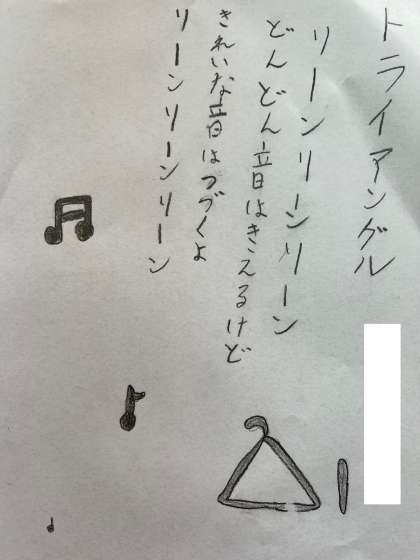 トライアングル
リーンリーンリーン
どんどん音はきえるけど
きれいな音はつづくよ
リーンリーンリーン